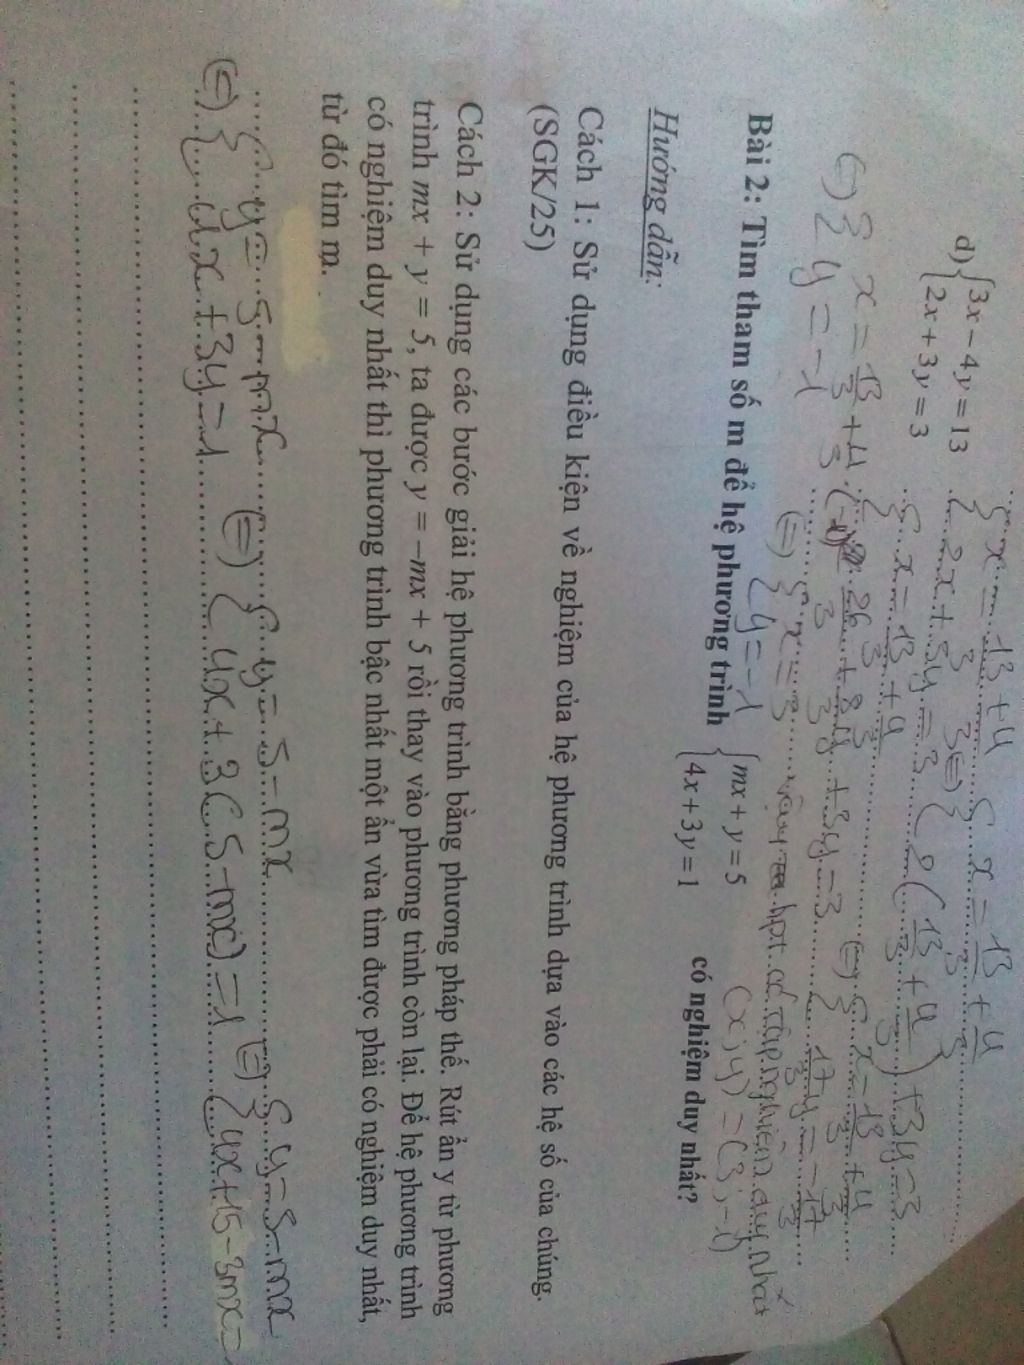 d) { 3x − 4y = 13
2x + 3y = 3
{ x = 13/3 + 4/3
2x + 3y = 3
(=) { x = 13/3 + 4/3
2(13/3 + 4/3) + 3y = 3
{ x = 13/3 + 4/3
26/3 + 8/3 y + 3y = 3
(=) { x = 13/3 + 4/3
17/3 y = -17/3
(=) { x = 13/3 + 4/3 . (-1)
y = -1
(=) { x = 3
y = -1
hpt có tập nghiệm duy nhất
(x; y) = (3; -1)
Bài 2: Tìm tham số m để hệ phương trình { mx + y = 5
4x + 3y = 1 có nghiệm duy nhất?
Hướng dẫn:
Cách 1: Sử dụng điều kiện về nghiệm của hệ phương trình dựa vào các hệ số của chúng.
(SGK/25)
Cách 2: Sử dụng các bước giải hệ phương trình bằng phương pháp thế. Rút ẩn y từ phương
trình mx + y = 5, ta được y = −mx + 5 rồi thay vào phương trình còn lại. Để hệ phương trình
có nghiệm duy nhất thì phương trình bậc nhất một ẩn vừa tìm được phải có nghiệm duy nhất,
từ đó tìm m.
{ y = 5 - mx { y = 5 - mx { y = 5 - mx
(=) 4x + 3y = 1 (=) 4x + 3(5 - mx) = 1 (=) 4x + 15 - 3mx =